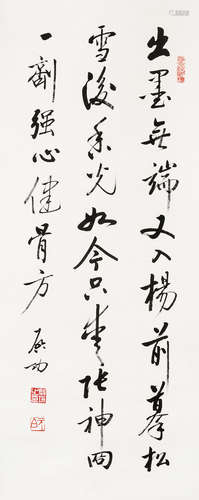 出墨無端又入楊前摹松
雪後香光如今只愛張神冏
一劑强心健骨方
啟功